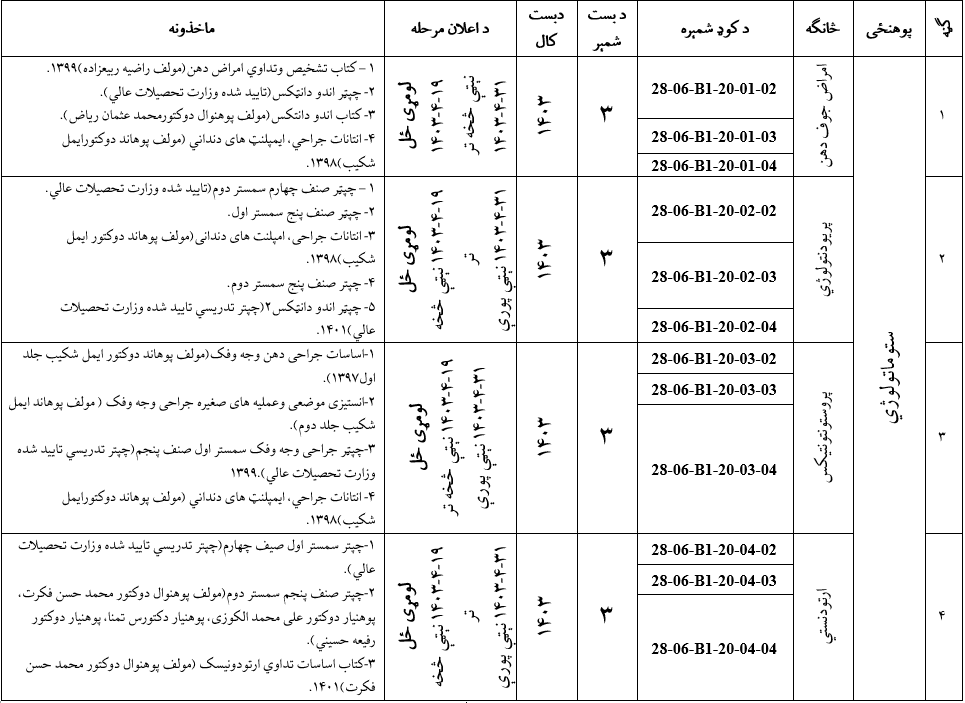 ګڼه
پوهنځی
څانګه
د کوډ شمېره
د بست شمېر
دبست کال
د اعلان مرحله
ماخذونه
ستوماتولوژي
۱
امراض جوف دهن
28-06-B1-20-01-02
28-06-B1-20-01-03
28-06-B1-20-01-04
۳
۱۴۰۳
لومړی ځل
۱۴۰۳-۴-۱۹
نېټې څخه تر
۱۴۰۳-۴-۳۱
۱ – کتاب تشخیص وتداوي امراض دهن(مولف راضیه ربیعزاده)۱۳۹۹.
۲- چپټر اندو دانټکس(تایید شده وزارت تحصیلات عالي).
۳- کتاب اندو دانتکس(مولف پوهنوال دوکتورمحمد عثمان ریاض).
۴- انتانات جراحي، ایمپلنټ های دنداني (مولف پوهاند دوکتورایمل
شکیب)۱۳۹۸.
۲
پریودنتولوژي
28-06-B1-20-02-02
28-06-B1-20-02-03
28-06-B1-20-02-04
۳
۱۴۰۳
لومړی ځل
۱۴۰۳-۴-۱۹ نېټې څخه
تر
۱۴۰۳-۴-۳۱ نېټې پورې
۱ – چپټر صنف چهارم سمستر دوم(تایید شده وزارت تحصیلات عالي).
۲- چپټر صنف پنج سمستر اول.
۳- انتانات جراحی، امپلنت های دندانی(مولف پوهاند دوکتور ایمل
شکیب)۱۳۹۸.
۴- چپتر صنف پنج سمستر دوم.
۵- چپټر اندو دانټکس۲(چپتر تدریسي تایید شده وزارت تحصیلات
عالي)۱۴۰۱.
۳
پروستونتونتیکس
28-06-B1-20-03-02
28-06-B1-20-03-03
28-06-B1-20-03-04
۳
۱۴۰۳
لومړی ځل
۱۴۰۳-۴-۱۹ نېټې څخه تر
۱۴۰۳-۴-۳۱ نېټې پورې
۱-اساسات جراحی دهن وجه وفک(مولف پوهاند دوکتور ایمل شکیب جلد
اول۱۳۹۷).
۲-انستیزی موضعی وعملیه های صغیره جراحی وجه وفک ( مولف پوهاند ایمل
شکیب جلد دوم).
۳-چپټر جراحی وجه وفک سمستر اول صنف پنجم(چپتر تدریسي تایید شده
وزارت تحصیلات عالي).۱۳۹۹
۴- انتانات جراحي، ایمپلنټ های دنداني (مولف پوهاند دوکتورایمل
شکیب)۱۳۹۸.
۴
ارتودنستي
28-06-B1-20-04-02
28-06-B1-20-04-03
28-06-B1-20-04-04
۳
۱۴۰۳
لومړی ځل
۱۴۰۳-۴-۱۹ نېټې څخه
تر
۱۴۰۳-۴-۳۱ نېټې پورې
۱-چپتر سمستر اول صیف چهارم(چپتر تدریسي تایید شده وزارت تحصیلات
عالي).
۲-چپتر صنف پنجم سمستر دوم(مولف پوهنوال دوکتور محمد حسن فکرت،
پوهنیار دوکتور علی محمد الکوزی، پوهنیار دکتورس تمنا، پوهنیار دوکتور
رفیعه حسیني).
۳-کتاب اساسات تداوي ارتودونیسک (مولف پوهنوال دوکتور محمد حسن
فکرت)۱۴۰۱.